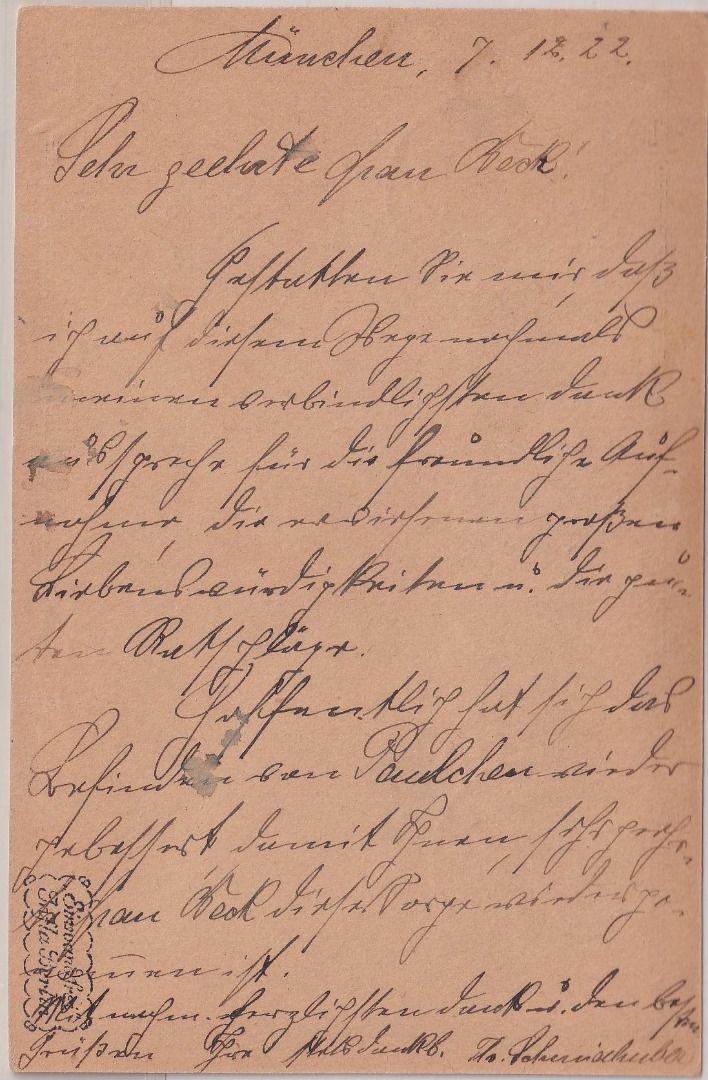 München, 7. 12. 22.
Sehr geehrte Frau Beck!
Gestatten Sie mir, daß
ich auf diesem Wege nochmals
meinen verbindlichsten Dank
ausspreche für die freundliche Auf-
nahme, die erwiesenen großen
Liebenswürdigkeiten u. die gu-
ten Ratschläge.
Hoffentlich hat sich das
Befinden von Paulchen wieder
gebessert, damit Ihnen, sehr geehr.
Frau Beck diese Sorge wieder ge-
nommen ist.
Mit nochm. herzlichsten Dank u. den besten
Grüßen Ihre stets dankb.